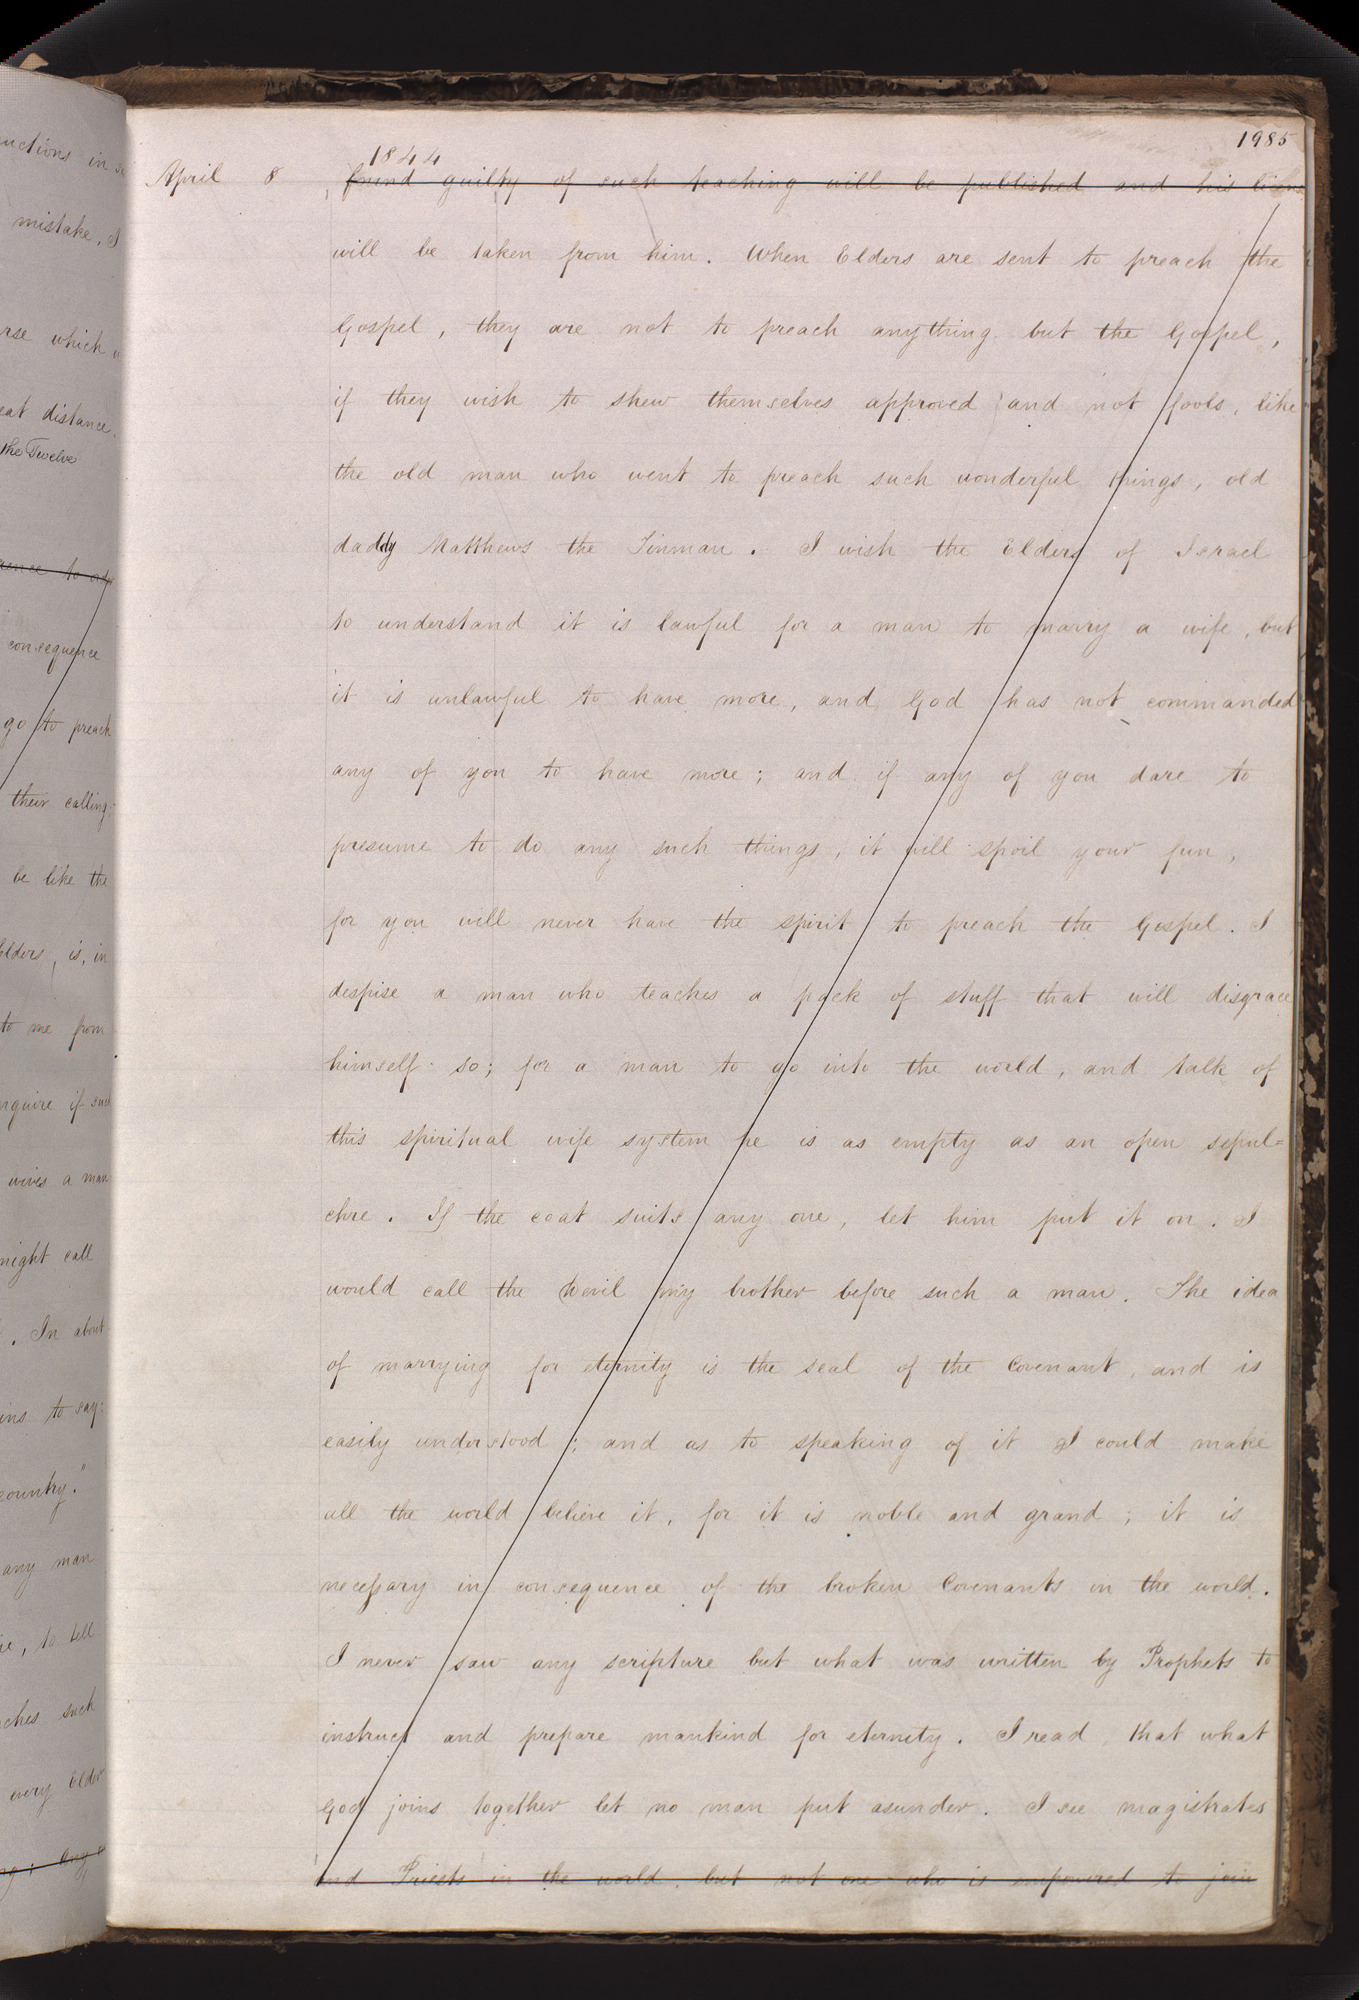 1985
1844
April 8 found guilty of such teaching will be published and his license
will be taken from him. When Elders are sent to preach the
Gospel, they are not to preach anything but the Gospel,
if they wish to shew themselves approved and not fools, like
the old man who went to preach such wonderful things, old
daddy Matthews the Tinman. I wish the Elders of Israel
to understand it is lawful for a man to marry a wife, but
it is unlawful to have more, and God has not commanded
any of you to have more; and if any of you dare to
presume to do any such things, it will spoil your fun,
for you will never have the spirit to preach the Gospel. I
despise a man who teaches a pack of stuff that will disgrace
himself so; for a man to go into the world, and talk of
this spiritual wife system he is as empty as an open sepul=
chre. If the coat suits any one, let him put it on. I
would call the Devil my brother before such a man. The idea
of marrying for eternity is the seal of the Covenant, and is
easily understood; and as to speaking of it I could make
all the world believe it, for it is noble and grand; it is
necessary in consequence of the broken Covenants in the world.
I never saw any scripture but what was written by Prophets to
instruct and prepare mankind for eternity. I read, that what
God joins together let no man put asunder. I see magistrates
and Priests in the world, but not one who is empowered to join
uctions in
mistake, I
rse which
eat distance.
the Twelve
consequence
go to preach
their calling
be like the
Elders, is, in
to me from
nquire if such
wives a man
might call
. In about
ins to say:
country."
any man
, to tell
ches such
every Elder
any